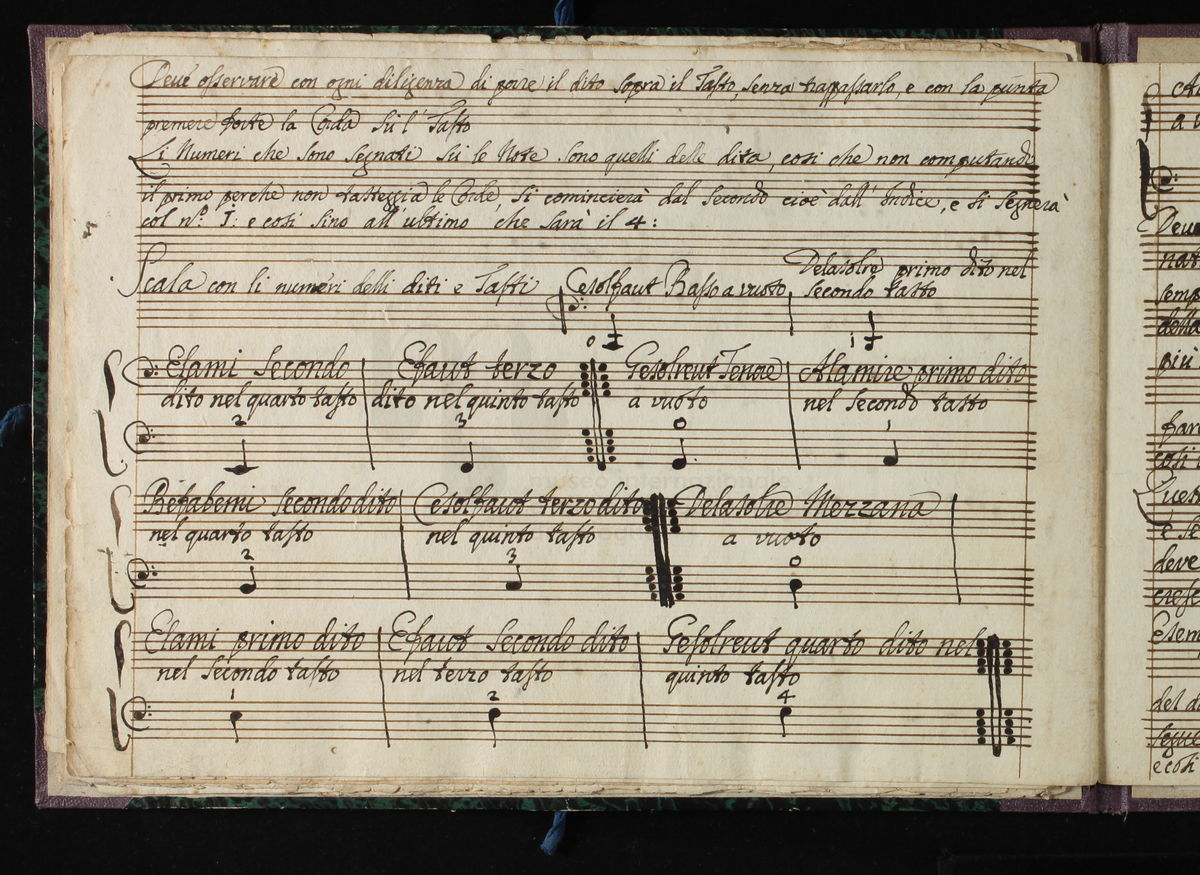 Deve osservare con ogni diligenza di porre il dito sopra il Tasto, senza trappassarlo, e con la punta
premere forte la Corda sù l' Tasto
Li Numeri che sono segnati sù le Note sono quelli delle dita, così che non computando
il primo perche non tasteggia le Corde, si comincierà dal secondo cioè dall' Indice, e si segnerà
col nº. I: e così sino all' ultimo che sarà il 4:
Scala con li numeri delli diti e Tasti
Cesolfaut Basso a vuoto
0
Delasolre primo dito nel
secondo tasto
1
Elami secondo
dito nel quarto tasto
2
Efaut terzo
dito nel quinto tasto
3
Gesolreut Tenore
a vuoto
0
Alamire primo dito
nel secondo tasto
1
Befabemi secondo dito
nel quarto tasto
2
Cesolfaut terzo dito
nel quinto tasto
3
Delasolre Mezzana
a vuoto
0
Elami primo dito
nel secondo tasto
1
Efaut secondo dito
nel terzo tasto
2
Gesolreut quarto dito nel
quinto tasto
4